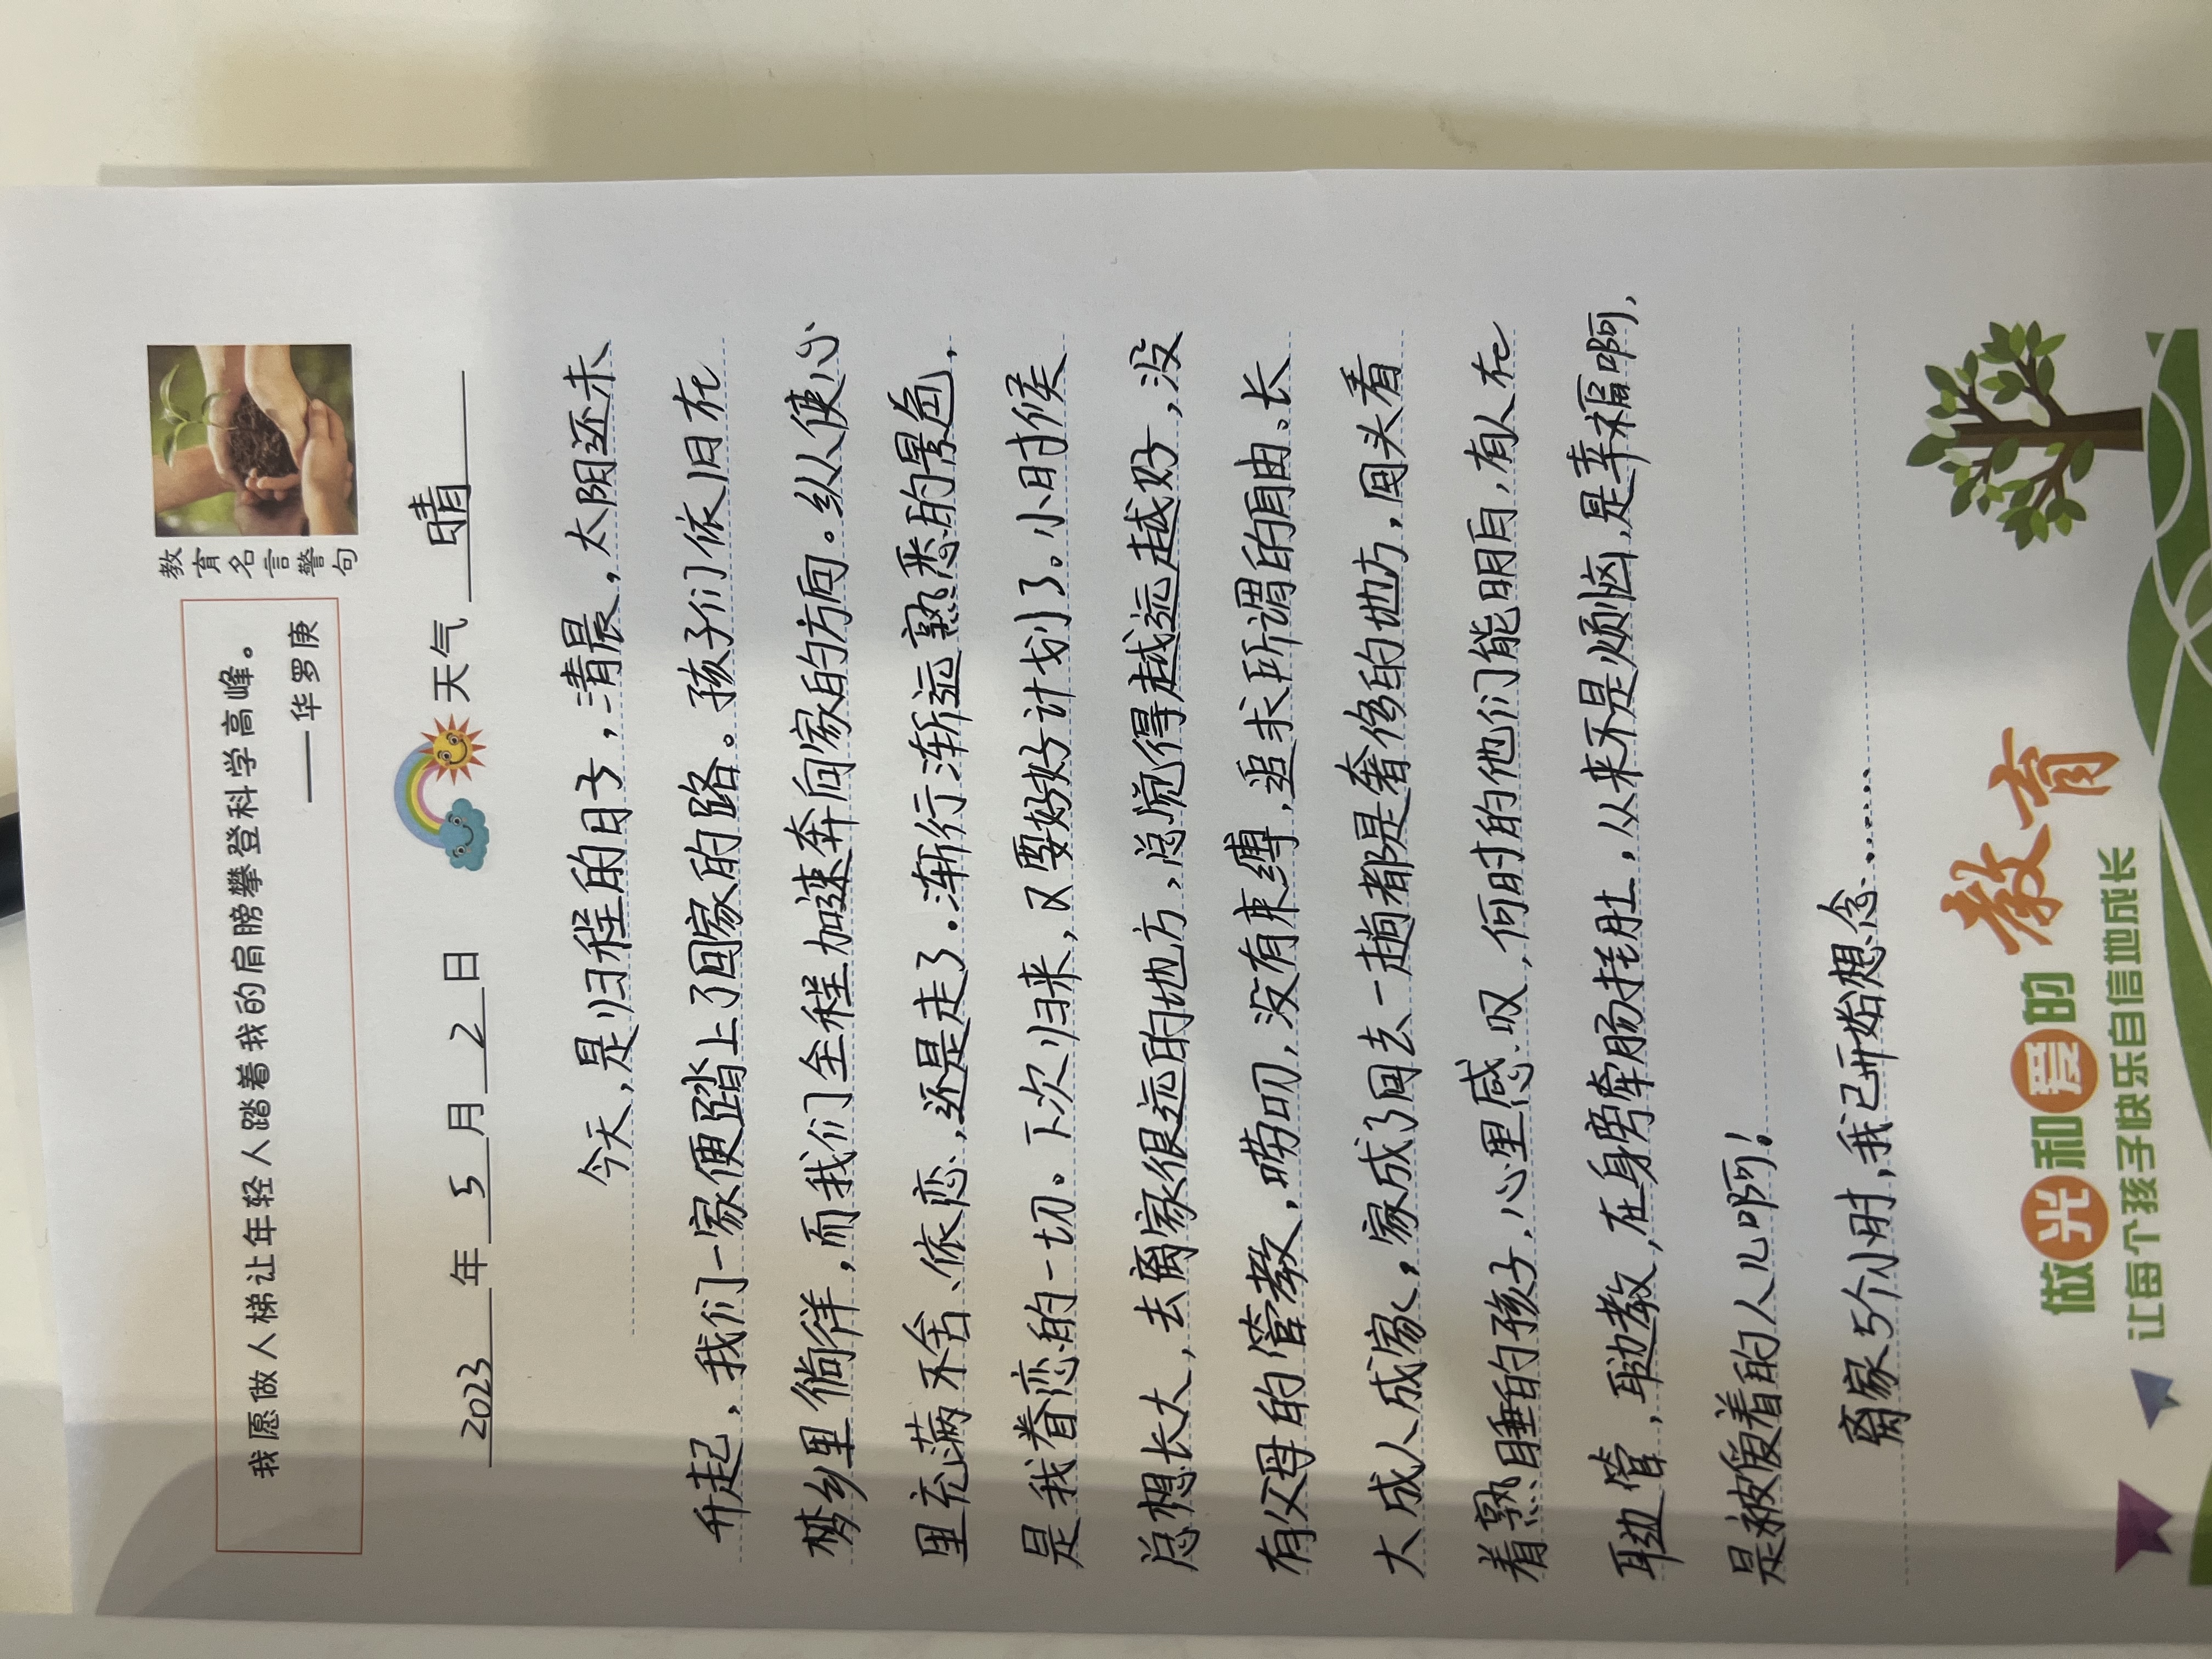 我愿做人梯让年轻人踏着我的肩膀攀登科学高峰。
——华罗庚
教育名言警句
2023年5月2日 天气 晴
今天,是归程的日子,清晨,太阳还未
升起,我们一家便踏上了回家的路。孩子们依旧在
梦乡里徜徉,而我们全程加速奔向家的方向。纵使心
里充满不舍、依恋,还是走了.渐行渐远熟悉的景色,
是我眷恋的一切。下次归来,又要好好计划了。小时候
总想长大,去离家很远的地方,总觉得越远越好,没
有父母的管教,唠叨,没有束缚,追求所谓的自由、长
大成人成家,家成了回去一趟都是奢侈的地方,回头看
着熟睡的孩子,心里感叹,何时的他们能明白,有人在
耳边管,耳边教,在身旁牵肠挂肚,从来不是烦恼,是幸福啊,
是被爱着的人儿啊!
离家5个小时,我已开始想念……
做光和爱的教育
让每个孩子快乐自信地成长